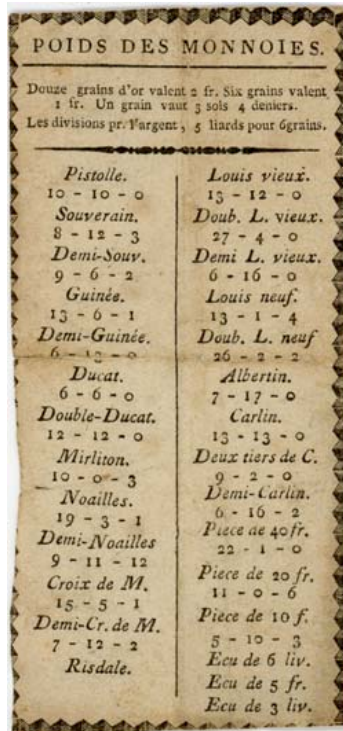 POIDS DES MONNOIES.
Douze grains d'or valent 2 fr. Six grains valent
1 fr. Un grain vaut 3 sols 4 deniers.
Les divisions pr. l'argent, 5 liards pour 6 grains.
Pistolle.
10 - 10 - 0
Souverain.
8 - 12 - 3
Demi-Souv.
9 - 6 - 2
Guinée.
13 - 6 - 1
Demi-Guinée.
6 - 13 - 0
Ducat.
6 - 6 - 0
Double-Ducat.
12 - 12 - 0
Mirliton.
10 - 0 - 3
Noailles.
19 - 3 - 1
Demi-Noailles
9 - 11 - 12
Croix de M.
15 - 5 - 1
Demi-Cr. de M.
7 - 12 - 2
Risdale.
Louis vieux.
13 - 12 - 0
Doub. L. vieux.
27 - 4 - 0
Demi L. vieux.
6 - 16 - 0
Louis neuf.
13 - 1 - 4
Doub. L. neuf
26 - 2 - 2
Albertin.
7 - 17 - 0
Carlin.
13 - 13 - 0
Deux tiers de C.
9 - 2 - 0
Demi-Carlin.
6 - 16 - 2
Piece de 40 fr.
22 - 1 - 0
Piece de 20 fr.
11 - 0 - 6
Piece de 10 f.
5 - 10 - 3
Ecu de 6 liv.
Ecu de 5 fr.
Ecu de 3 liv.